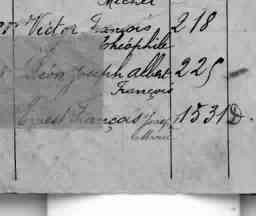 Michel
Victor François 218
Théophile
Léon Joseph Albert 225
François
Ernest François Josep 1531 D.